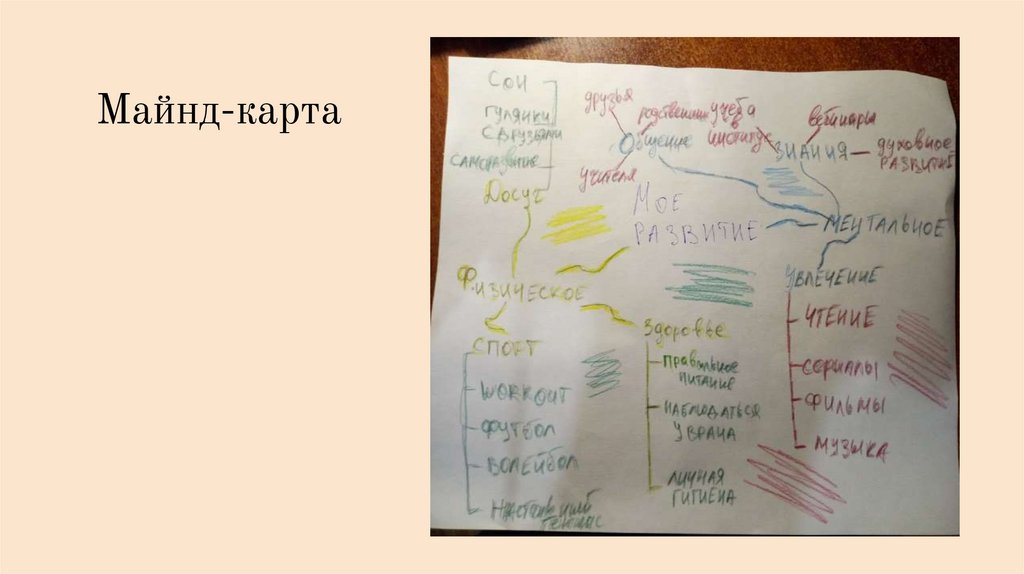 Майнд-карта
СОН
ГУЛЯНКИ
С ДРУЗЬЯМИ
Досуг
друзья
родственники
Общение
учителя
учёба
в
институте
вебинары
ЗНАНИЯ
духовное
РАЗВИТИЕ
МОЕ
РАЗВИТИЕ
МЕНТАЛЬНОЕ
ФИЗИЧЕСКОЕ
УВЛЕЧЕНИЕ
ЧТЕНИЕ
СЕРИАЛЫ
ФИЛЬМЫ
МУЗЫКА
Здоровье
правильное
питание
НАБЛЮДАТЬСЯ
У ВРАЧА
ЛИЧНАЯ
ГИГИЕНА
СПОРТ
WORKOUT
ФУТБОЛ
ВОЛЕЙБОЛ
теннис